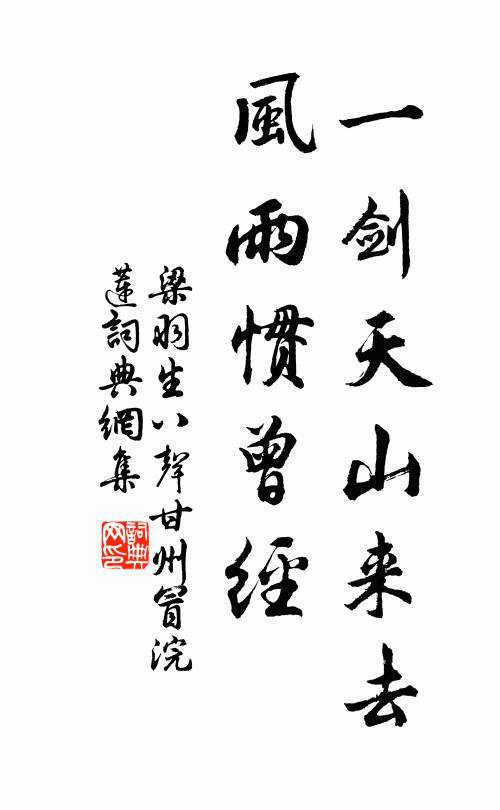 一剑天山来去
風雨慣曾經
梁羽生八聲甘州冒浣
蓮詞典網集
詞典网印